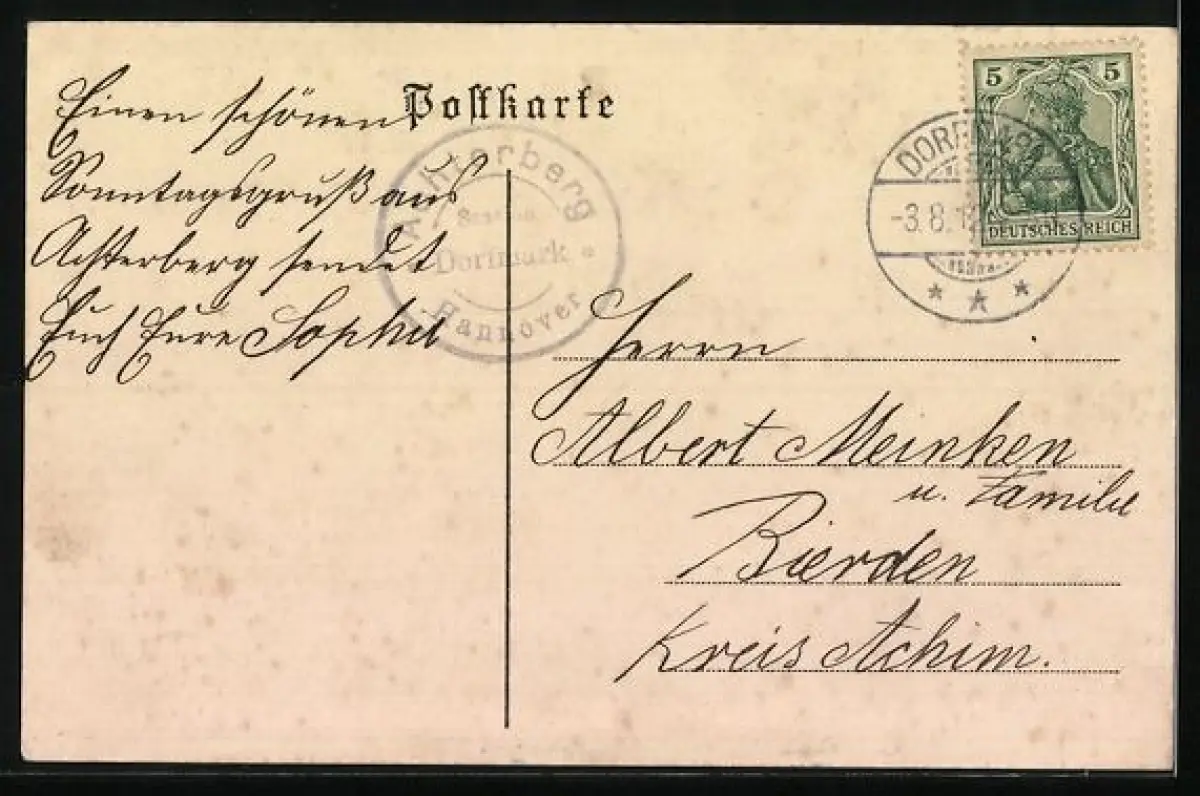 Postkarte
Einen schönen
Sonntagsgruß aus
Achterberg sendet
Euch Eure Sophie
Achterberg
Station
Dorfmark
Hannover
5 5
DEUTSCHES REICH
-3.8.12
Herrn
Albert Meinken
u. Familie
Bierden
Kreis Achim.